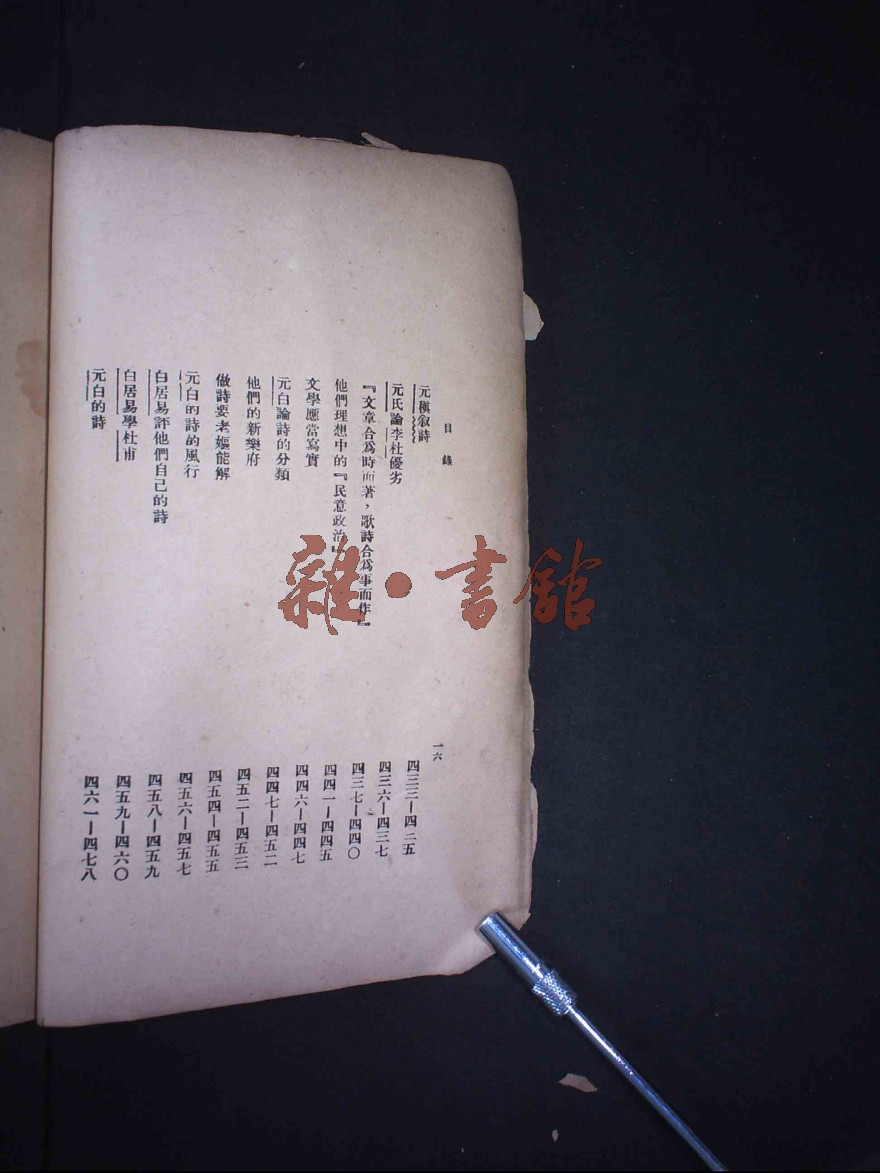 目錄
一六
元稹叙詩
四三三—四二五
元氏論李杜優劣
四三六—四三七
『文章合爲時而著，歌詩合爲事而作』
四三七—四四〇
他們理想中的『民意政治』
四四一—四四五
文學應當寫實
四四六—四四七
元白論詩的分類
四四七—四五二
他們的新樂府
四五二—四五三
做詩要老嫗能解
四五四—四五五
元白的詩的風行
四五六—四五七
白居易評他們自己的詩
四五八—四五九
白居易學杜甫
四五九—四六〇
元白的詩
四六一—四七八
雜·書館